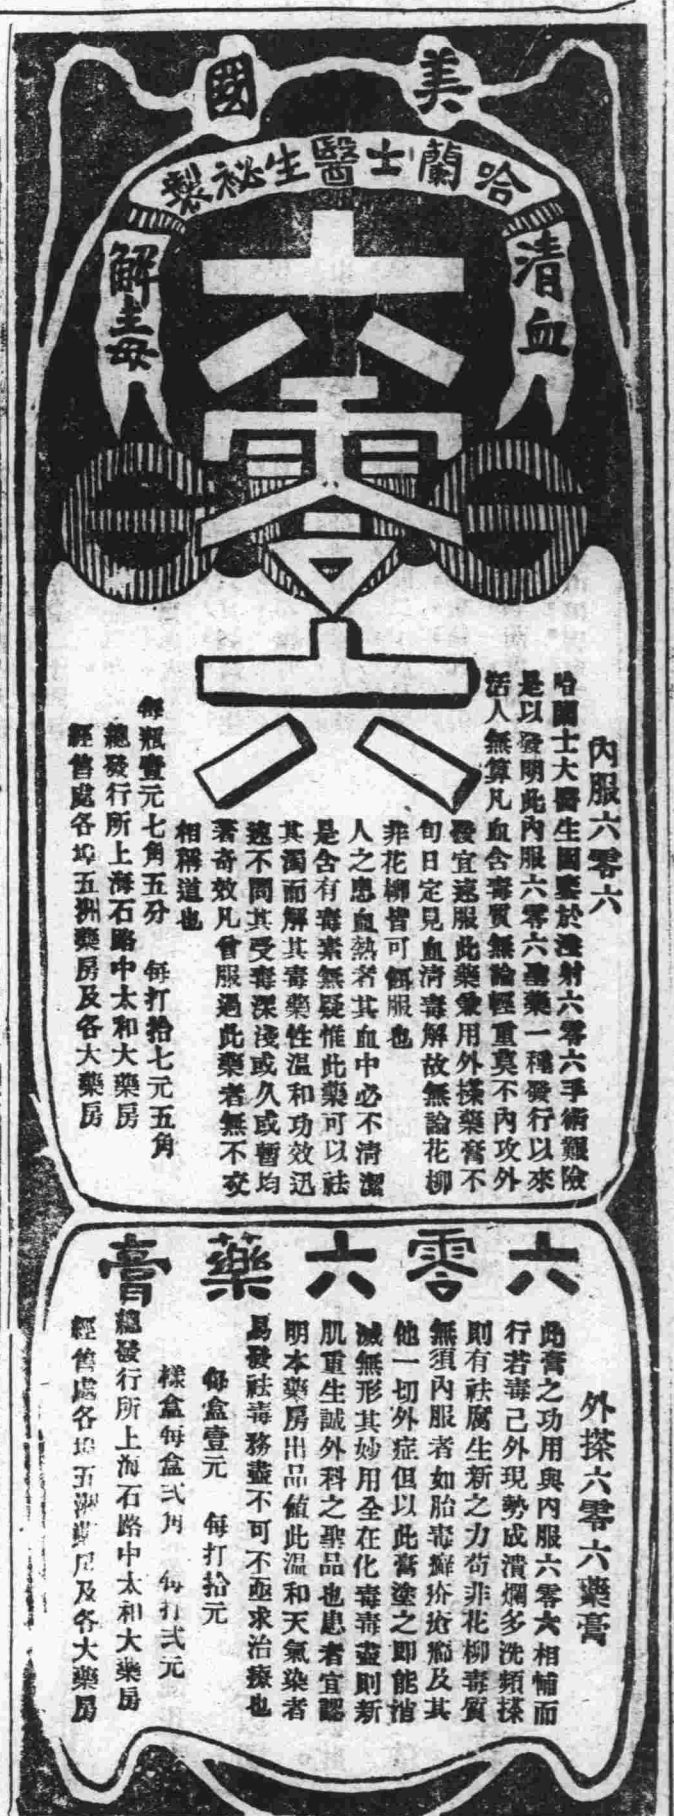 美國
哈蘭士醫生祕製
清血
解毒
六零六
內服六零六
哈蘭士大醫生因鑒於注射六零六手術艱險
是以發明此內服六零六聖藥一種發行以來
活人無算凡血含毒質無論輕重莫不內攻外
發宜速服此藥兼用外搽藥膏不
旬日定見血清毒解故無論花柳
非花柳皆可餌服也
人之患血熱者其血中必不清潔
是含有毒素無疑惟此藥可以祛
其濁而解其毒藥性溫和功效迅
速不問其受毒深淺或久或暫均
著奇效凡曾服過此藥者無不交
相稱道也
每瓶壹元七角五分 每打拾七元五角
總發行所上海石路中太和大藥房
經售處各埠五洲藥房及各大藥房
六零六藥膏
外搽六零六藥膏
此膏之功用與內服六零六相輔而
行若毒已外現勢成潰爛多洗頻搽
則有祛腐生新之力苟非花柳毒質
無須內服者如胎毒癬疥瘡癤及其
他一切外症但以此膏塗之即能消
滅無形其妙用全在化毒毒盡則新
肌重生誠外科之聖品也患者宜認
明本藥房出品值此溫和天氣染者
易發祛毒務盡不可不亟求治療也
每盒壹元 每打拾元
樣盒每盒弍角 每打弍元
總發行所上海石路中太和大藥房
經售處各埠五洲藥房及各大藥房